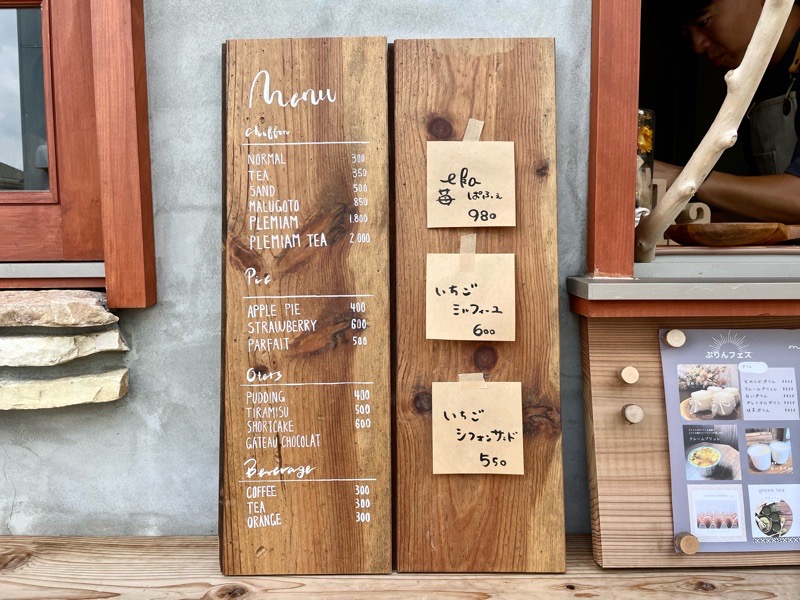 Menu
Chiffon
NORMAL 300
TEA 350
SAND 500
MALUGOTO 850
PLEMIAM 1.800
PLEMIAM TEA 2.000
Pie
APPLE PIE 400
STRAWBERRY 600
PARFAIT 500
Oters
PUDDING 400
TIRAMISU 500
SHORTCAKE 600
GATEAU CHOCOLAT
Beverage
COFFEE 300
TEA 300
ORANGE 300
eka
苺 ぱふぇ
980
いちご
ミルフィーユ
600
いちご
シフォンサンド
550
ぷりんフェス
green tea